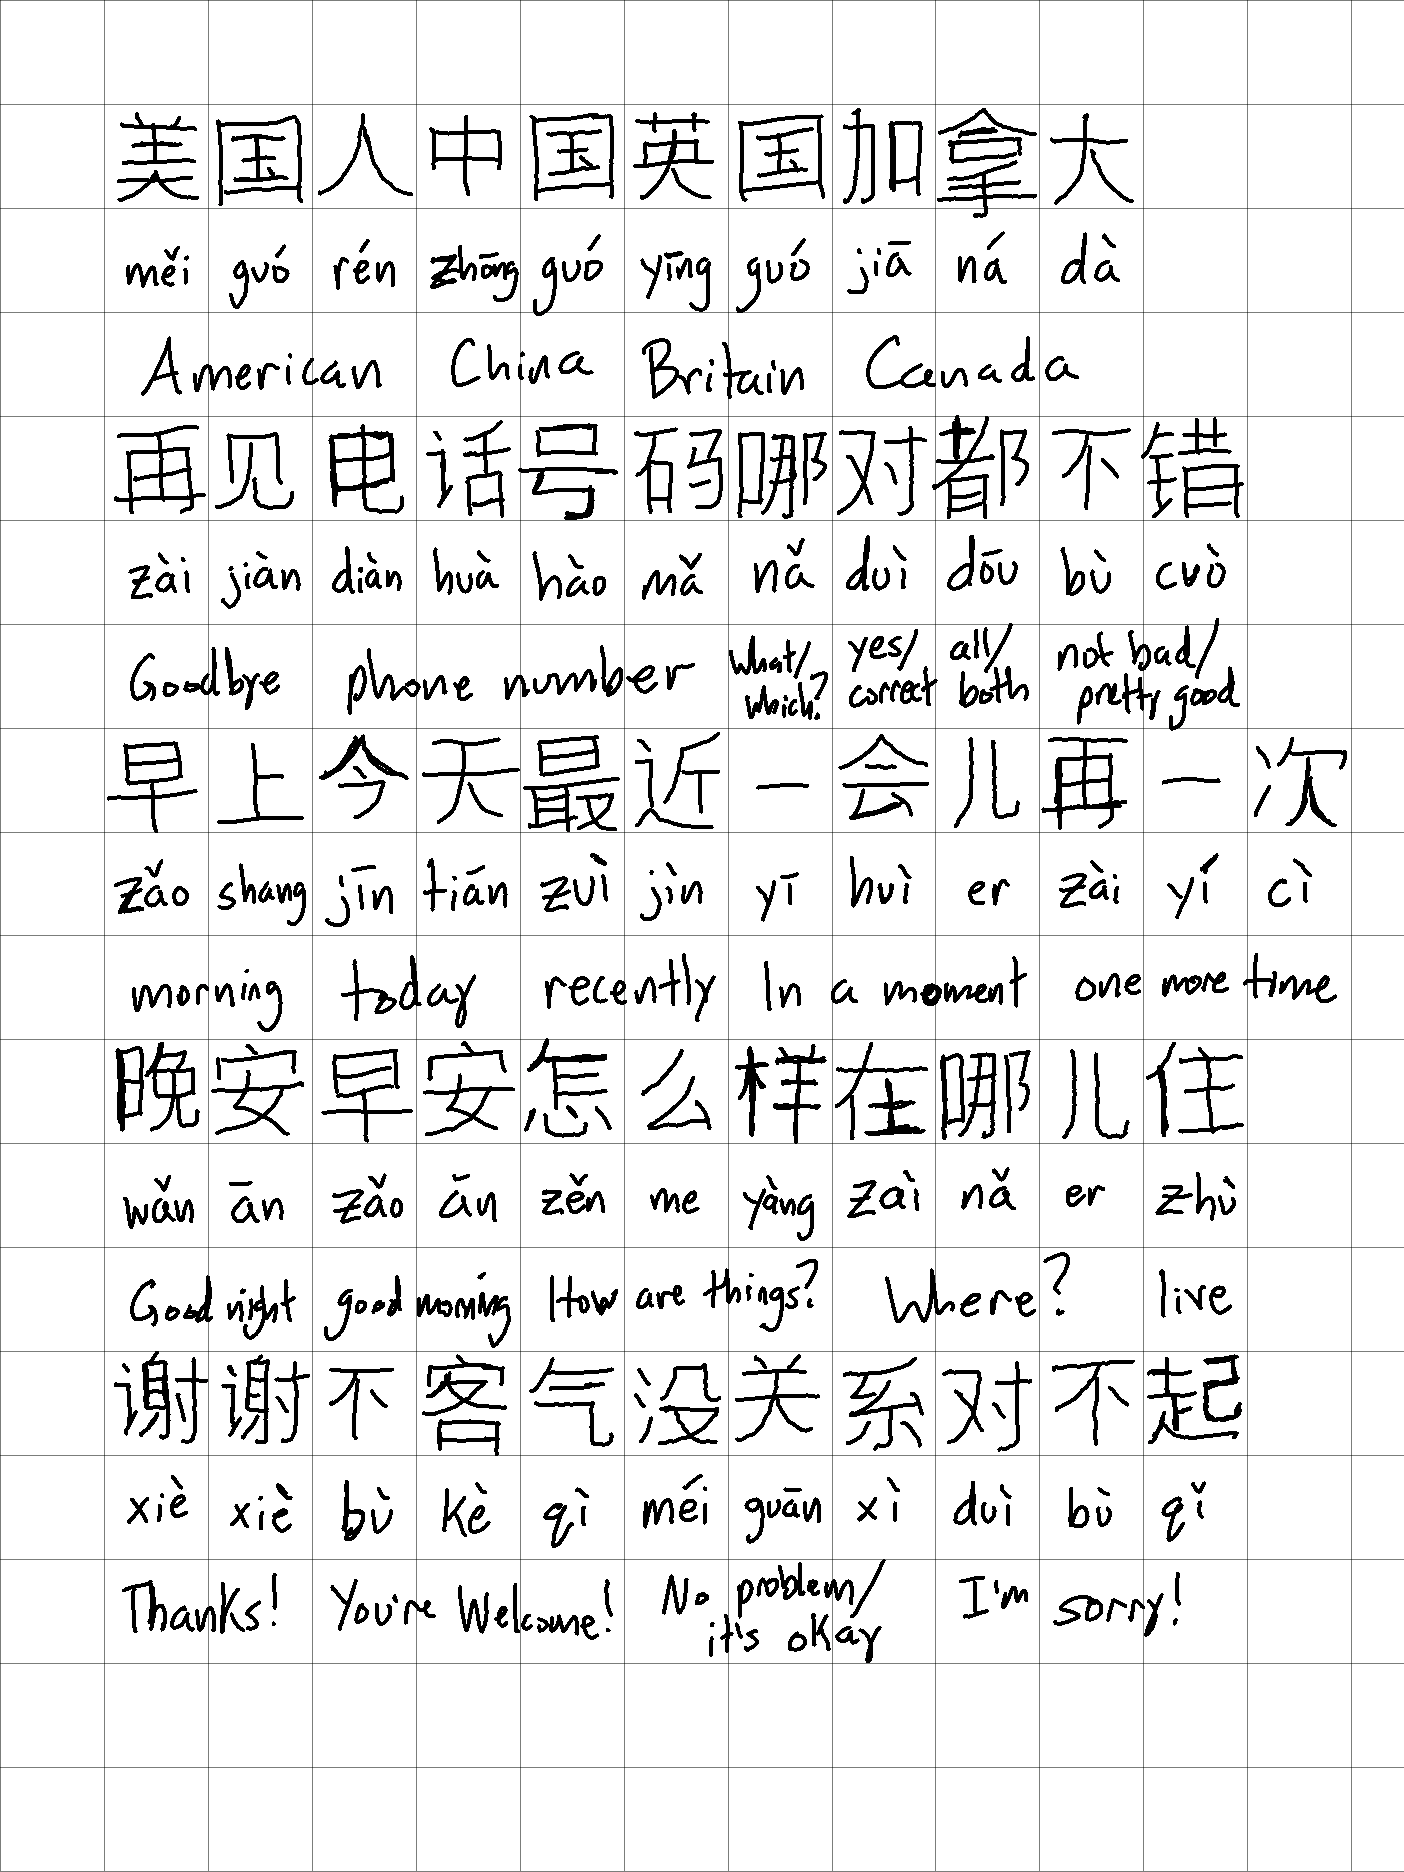 美国人中国英国加拿大
měi guó rén zhōng guó yīng guó jiā ná dà
American China Britain Canada
再见电话号码哪对都不错
zài jiàn diàn huà hào mǎ nǎ duì dōu bù cuò
Goodbye phone number what/which? yes/correct all/both not bad/pretty good
早上今天最近一会儿再一次
zǎo shang jīn tiān zuì jìn yī huì er zài yí cì
morning today recently In a moment one more time
晚安早安怎么样在哪儿住
wǎn ān zǎo ān zěn me yàng zaì nǎ er zhù
Good night good morning How are things? Where? live
谢谢不客气没关系对不起
xiè xiè bù kè qì méi guān xì duì bù qǐ
Thanks! You're Welcome! No problem/it's okay I'm sorry!